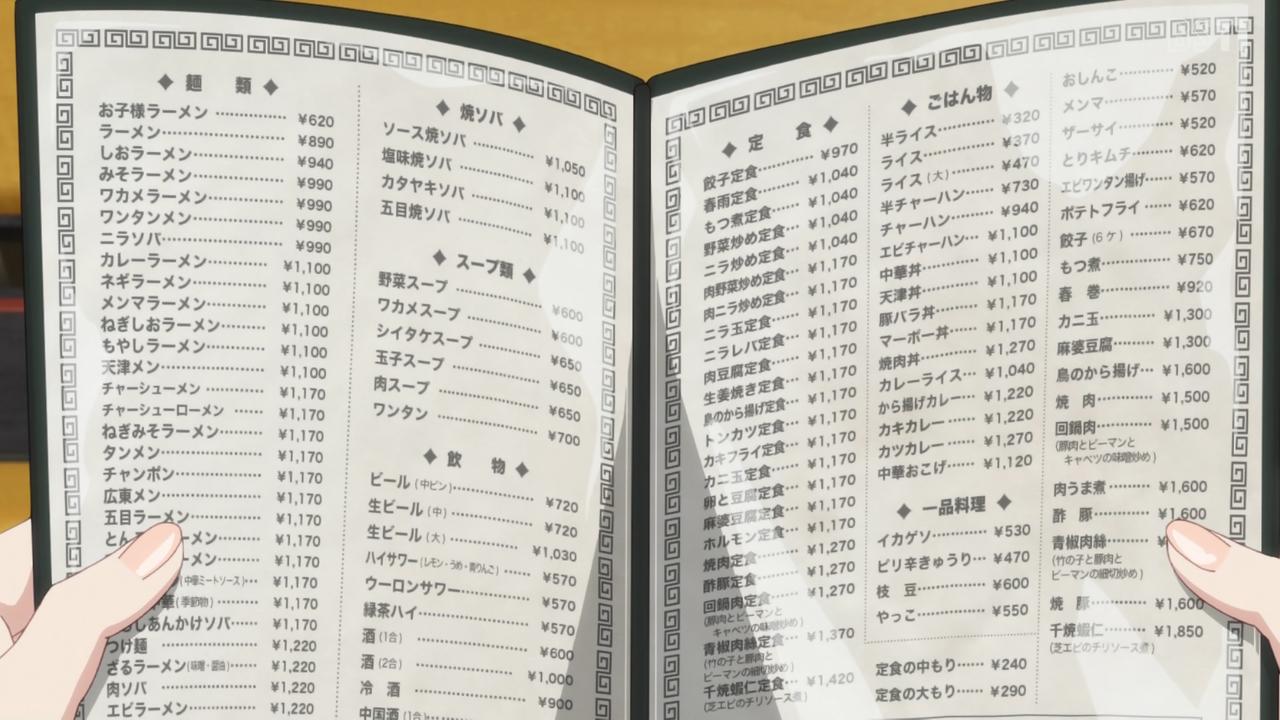 ◆ 麺 類 ◆
お子様ラーメン ¥620
ラーメン ¥890
しおラーメン ¥940
みそラーメン ¥990
ワカメラーメン ¥990
ワンタンメン ¥990
ニラソバ ¥990
カレーラーメン ¥1,100
ネギラーメン ¥1,100
メンマラーメン ¥1,100
ねぎしおラーメン ¥1,100
もやしラーメン ¥1,100
天津メン ¥1,100
チャーシューメン ¥1,170
チャーシューローメン ¥1,170
ねぎみそラーメン ¥1,170
タンメン ¥1,170
チャンポン ¥1,170
広東メン ¥1,170
五目ラーメン ¥1,170
とん メン ¥1,170
メン ¥1,170
(中華ミートソース) ¥1,170
中華(季節物) ¥1,170
しあんかけソバ ¥1,170
つけ麺 ¥1,220
ざるラーメン(味噌・醤油) ¥1,220
肉ソバ ¥1,220
エビラーメン ¥1,220
◆ 焼ソバ ◆
ソース焼ソバ ¥1,050
塩味焼ソバ ¥1,100
カタヤキソバ ¥1,100
五目焼ソバ ¥1,100
◆ スープ類 ◆
野菜スープ ¥600
ワカメスープ ¥600
シイタケスープ ¥650
玉子スープ ¥650
肉スープ ¥650
ワンタン ¥700
◆ 飲 物 ◆
ビール(中ビン) ¥720
生ビール(中) ¥720
生ビール(大) ¥1,030
ハイサワー(レモン・うめ・青りんご) ¥570
ウーロンサワー ¥570
緑茶ハイ ¥570
酒(1合) ¥600
酒(2合) ¥1,000
冷 酒 ¥900
中国酒(1合)
◆ 定 食 ◆
餃子定食 ¥970
春雨定食 ¥1,040
もつ煮定食 ¥1,040
野菜炒め定食 ¥1,040
ニラ炒め定食 ¥1,040
肉野菜炒め定食 ¥1,170
肉ニラ炒め定食 ¥1,170
ニラ玉定食 ¥1,170
ニラレバ定食 ¥1,170
肉豆腐定食 ¥1,170
生姜焼き定食 ¥1,170
鳥のから揚げ定食 ¥1,170
トンカツ定食 ¥1,170
カキフライ定食 ¥1,170
カニ玉定食 ¥1,170
卵と豆腐定食 ¥1,170
麻婆豆腐定食 ¥1,170
ホルモン定食 ¥1,170
焼肉定食 ¥1,270
酢豚定食 ¥1,270
回鍋肉定食 ¥1,270
(豚肉とピーマンと
キャベツの味噌炒め)
青椒肉絲定食 ¥1,370
(竹の子と豚肉と
ピーマンの細切炒め)
干焼蝦仁定食 ¥1,420
(芝エビのチリソース煮)
◆ ごはん物 ◆
半ライス ¥320
ライス ¥370
ライス(大) ¥470
半チャーハン ¥730
チャーハン ¥940
エビチャーハン ¥1,100
中華丼 ¥1,100
天津丼 ¥1,100
豚バラ丼 ¥1,170
マーボー丼 ¥1,170
焼肉丼 ¥1,270
カレーライス ¥1,040
から揚げカレー ¥1,220
カキカレー ¥1,220
カツカレー ¥1,270
中華おこげ ¥1,120
◆ 一品料理 ◆
イカゲソ ¥530
ピリ辛きゅうり ¥470
枝 豆 ¥600
やっこ ¥550
定食の中もり ¥240
定食の大もり ¥290
おしんこ ¥520
メンマ ¥570
ザーサイ ¥520
とりキムチ ¥620
エビワンタン揚げ ¥570
ポテトフライ ¥620
餃子(6ケ) ¥670
もつ煮 ¥750
春 巻 ¥920
カニ玉 ¥1,300
麻婆豆腐 ¥1,300
鳥のから揚げ ¥1,600
焼 肉 ¥1,500
回鍋肉 ¥1,500
(豚肉とピーマンと
キャベツの味噌炒め)
肉うま煮 ¥1,600
酢 豚 ¥1,600
青椒肉絲 ¥
(竹の子と豚肉と
ピーマンの細切炒め)
焼 豚 ¥1,600
干焼蝦仁 ¥1,850
(芝エビのチリソース煮)